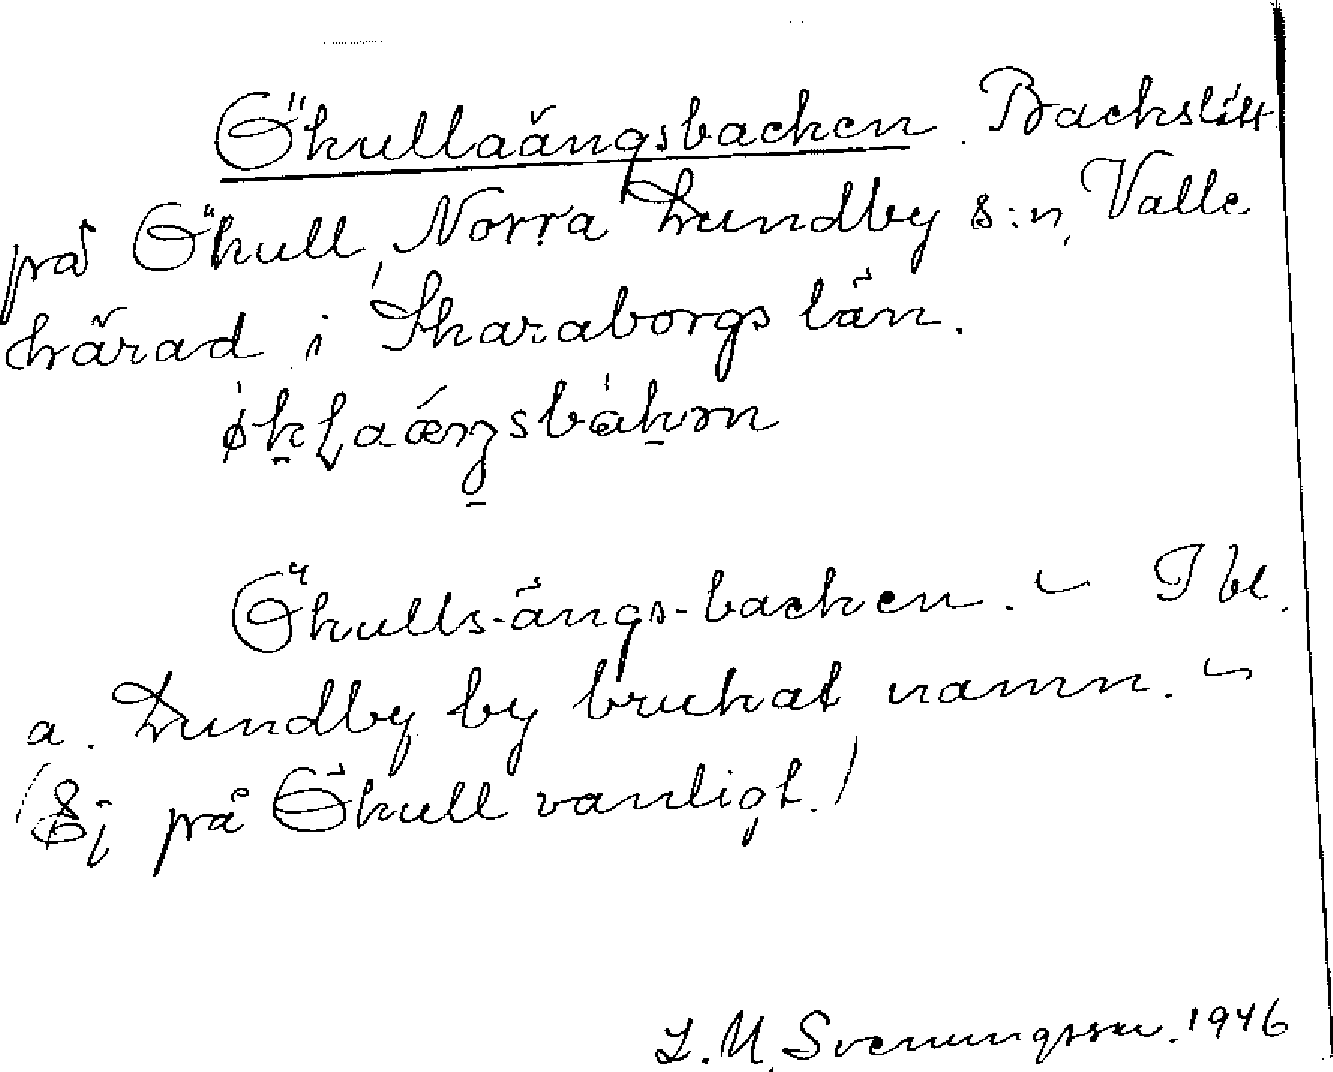 Ökullaängsbacken. Backslätt
på Ökull, Norra Lundby s:n, Valle
härad i Skaraborgs län.
Ökulls-ängs-backen. – I bl.
a. Lundby by brukat namn. –
(Ej på Ökull vanligt.)
L. M. Svenungsson. 1946